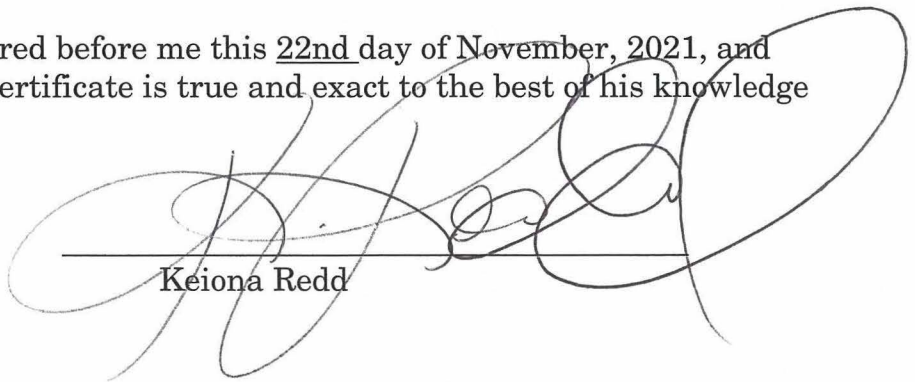 red before me this 22nd day of November, 2021, and
ertificate is true and exact to the best of his knowledge
Keiona Redd